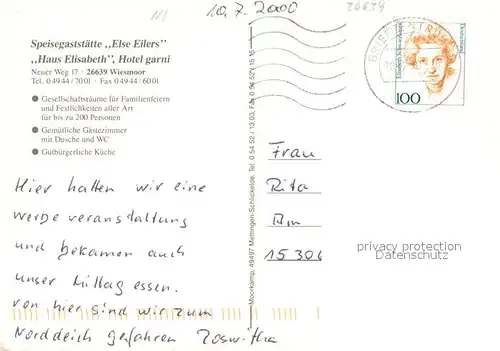 N!
10.7.2000
26639
Speisegaststätte „Else Eilers”
„Haus Elisabeth”, Hotel garni
Neuer Weg 17 · 26639 Wiesmoor
Tel. 04944/7001 · Fax 04944/6001
● Gesellschaftsräume für Familienfeiern
und Festlichkeiten aller Art
für bis zu 200 Personen
● Gemütliche Gästezimmer
mit Dusche und WC
● Gutbürgerliche Küche
Hier hatten wir eine
werbe veranstaltung
und bekamen auch
unser Mittag essen.
von hier sind wir zum
Norddeich gefahren Roswitha
Moorkamp, 49497 Mettingen-Schlickelde, Tel. 0 54 52 / 13 03, Fax 0 54 52 / 15 15
BRIEFZENTRUM
Elisabeth Schwarzhaupt
Deutschland
100
Frau
Rita
Am
15306
privacy protection
Datenschutz